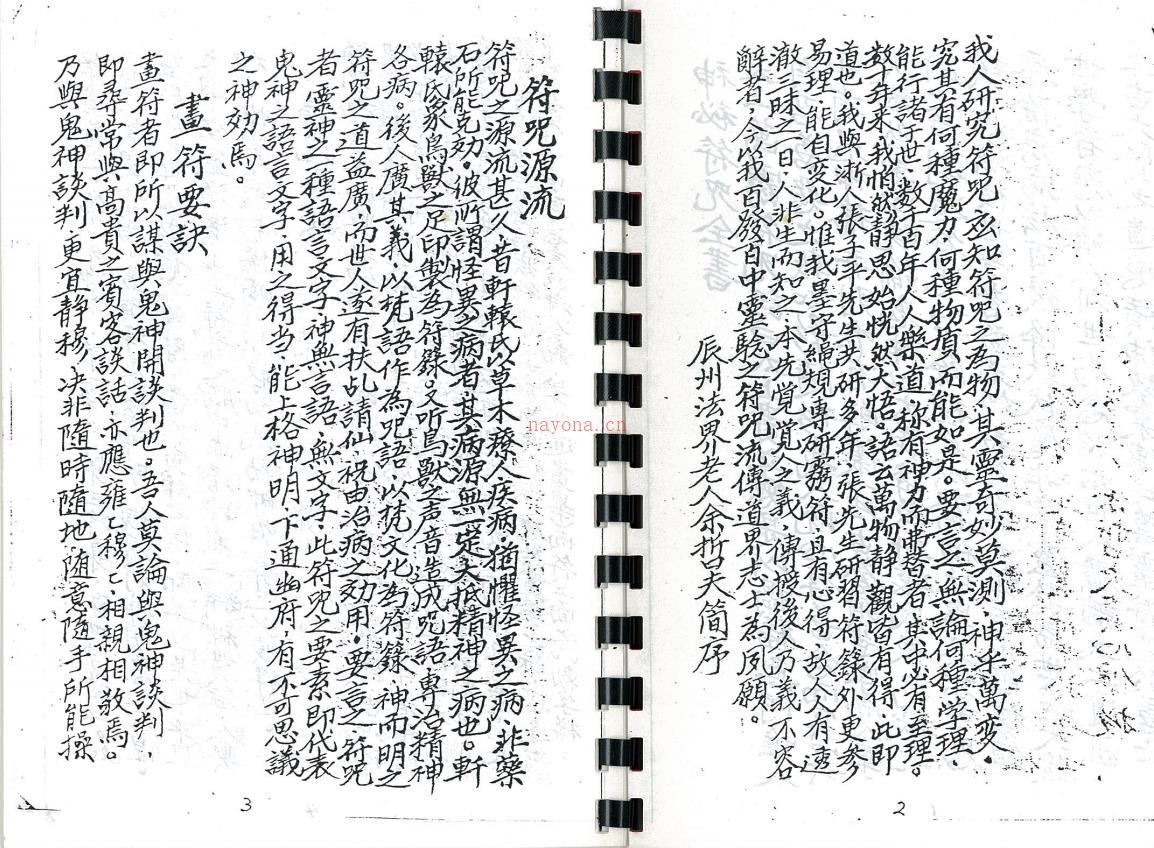 我人研究符咒玄知符咒之為物，其靈奇妙莫測，神乎萬變，
究其有何種魔力，何種物質，而能如是。要言之，無論何種学理，
能行諸于世，数千百年，人人樂道，称有神力而弗替者，其中必有至理。
数十年来，我悄然静思，始恍然大悟。語云萬物静觀皆有得，此即
道也。我與浙人張子平先生共研多年，張先生研習符錄外更参
易理，能自变化。惟我墨守繩規，專研靈符，且有心得，故人人有透
澈三昧之一日，人非生而知之，本先覺覺人之義，傳授後人乃義不容
辭者，今以我百發百中靈驗之符咒流傳道界志士為夙願。
辰州法界老人余哲夫简序
2
符咒源流
符咒之源流甚久，昔軒轅氏以草木療人疾病，猶懼怪異之病，非藥
石所能克効。彼所謂怪異之病者，其病源無一定，大抵精神之病也。軒
轅氏象鳥獸之足印製為符錄，又听鳥獸之声音造成咒語，專治精神
各病。後人廣其義，以梵語作為咒語，以梵文化為符錄，神而明之，
符咒之道益廣，而世人遂有扶乩請仙，祝由治病之効用。要言之，符咒
者靈神之一種語言文字，神無言語，無文字，此符咒之要素即代表
鬼神之語言文字，用之得当，能上格神明，下通幽府，有不可思議
之神効焉。
畫符要訣
畫符者即所以謀與鬼神開談判也。吾人莫論與鬼神談判，
即尋常與高貴之賓客談話，亦應雍雍穆穆，相親相敬焉。
乃與鬼神談判更宜静穆，决非隨時隨地，随意隨手所能操
3
nayona.cn